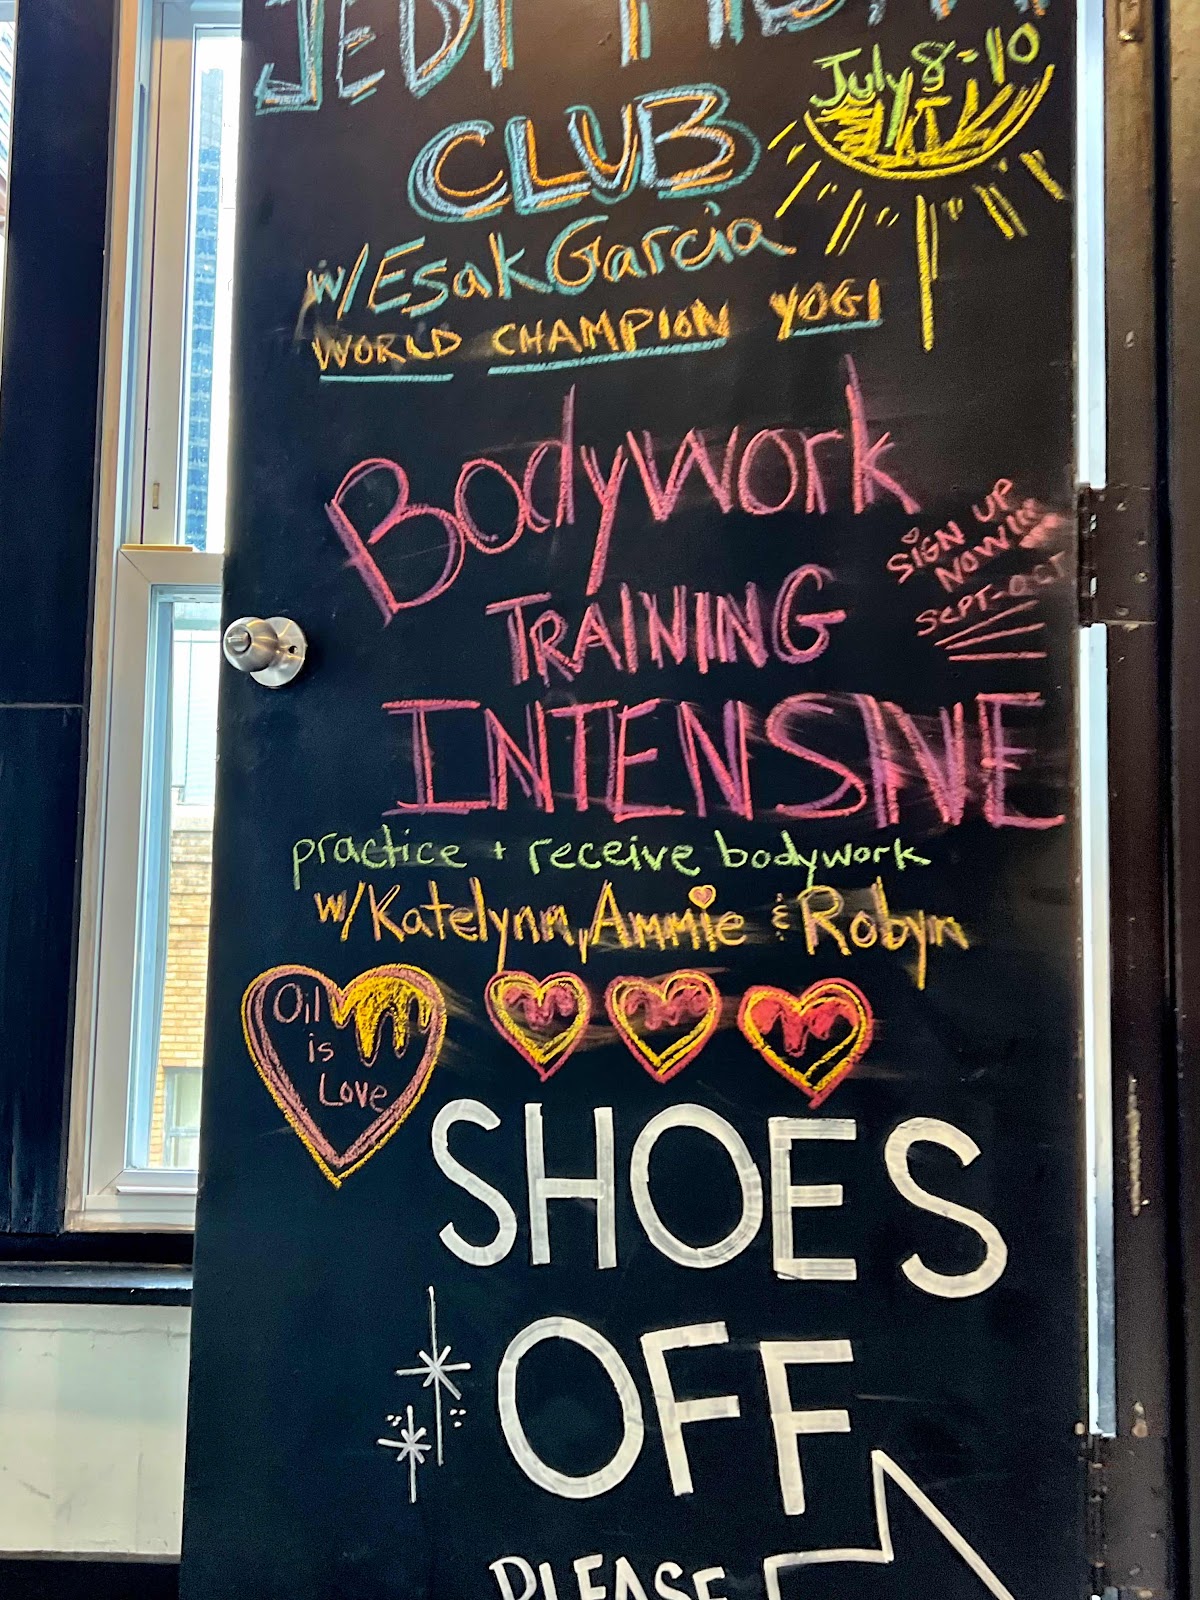 JEDI FIGHT
CLUB
July 8-10
w/Esak Garcia
WORLD CHAMPION YOGI
Bodywork
TRAINING
INTENSIVE
SIGN UP
NOW!!!
SEPT-OCT
practice + receive bodywork
w/Katelynn, Ammie & Robyn
Oil
is
Love
SHOES
OFF
PLEASE